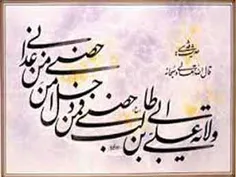 قال الله تعالی
ولایة علی بن ابی طالب حصنی فمن دخل حصنی امن من عذابی